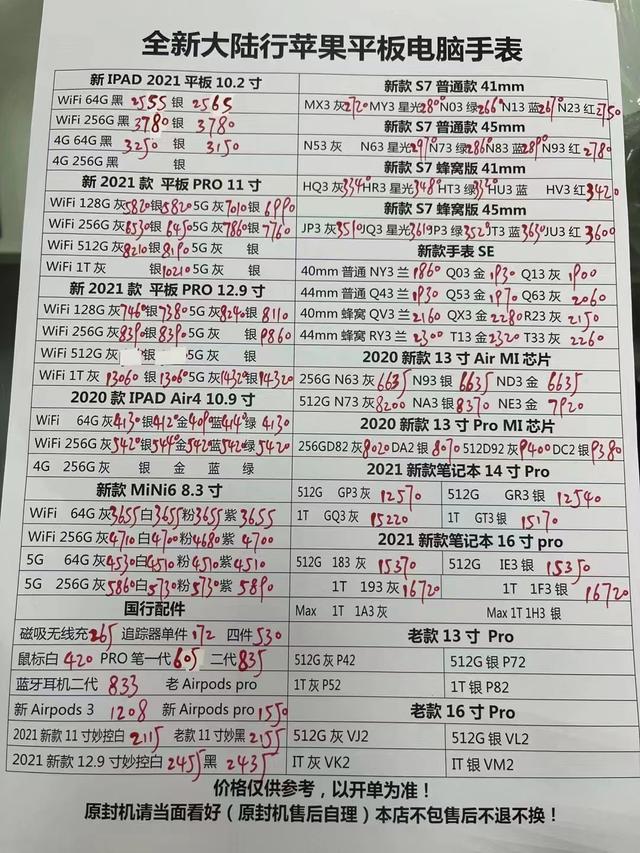 全新大陆行苹果平板电脑手表
新 IPAD 2021 平板 10.2 寸
WiFi 64G 黑 2555 银 2565
WiFi 256G 黑 3780 银 3780
4G 64G 黑 3250 银 3150
4G 256G 黑 银
新 2021 款 平板 PRO 11 寸
WiFi 128G 灰 5820 银 5820 5G 灰 7010 银 6990
WiFi 256G 灰 6530 银 6450 5G 灰 7860 银 7760
WiFi 512G 灰 8210 银 8190 5G 灰 银
WiFi 1T 灰 银 10210 5G 灰 银
新 2021 款 平板 PRO 12.9 寸
WiFi 128G 灰 7460 银 7380 5G 灰 8240 银 8110
WiFi 256G 灰 8390 银 8390 5G 灰 银 9860
WiFi 512G 灰 银 5G 灰 银
WiFi 1T 灰 13060 银 13060 5G 灰 14320 银 14320
2020 新款 IPAD Air4 10.9 寸
WiFi 64G 灰 4130 银 4120 金 4090 蓝 4140 绿 4130
WiFi 256G 灰 5420 银 5440 金 5420 蓝 5420 绿 5420
4G 256G 灰 银 金 蓝 绿
新款 MiNi6 8.3 寸
WiFi 64G 灰 3655 白 3655 粉 3655 紫 3655
WiFi 256G 灰 4710 白 4700 粉 4680 紫 4700
5G 64G 灰 4530 白 4510 粉 4510 紫 4510
5G 256G 灰 5860 白 5730 粉 5730 紫 5890
国行配件
磁吸无线充 265 追踪器单件 172 四件 530
鼠标白 420 PRO 笔一代 605 二代 835
蓝牙耳机二代 833 老 Airpods pro
新 Airpods 3 1208 新 Airpods pro 1550
2021 新款 11 寸妙控白 2115 老款 11 寸妙黑 2155
2021 新款 12.9 寸妙控白 2455 黑 2435
新款 S7 普通款 41mm
MX3 灰 2720 MY3 星光 2800 N03 绿 2660 N13 蓝 2670 N23 红 2750
新款 S7 普通款 45mm
N53 灰 N63 星光 2970 N73 绿 2860 N83 蓝 2890 N93 红 2780
新款 S7 蜂窝版 41mm
HQ3 灰 3340 HR3 星光 3480 HT3 绿 3340 HU3 蓝 HV3 红 3420
新款 S7 蜂窝版 45mm
JP3 灰 3510 JQ3 星光 3619 JP3 绿 3520 JT3 蓝 3630 JU3 红 3600
新款手表 SE
40mm 普通 NY3 兰 1860 Q03 金 1930 Q13 灰 1900
44mm 普通 Q43 兰 1930 Q53 金 1970 Q63 灰 2060
40mm 蜂窝 QV3 兰 2160 QX3 金 2280 R23 灰 2150
44mm 蜂窝 RY3 兰 2300 T13 金 2320 T33 灰 2260
2020 新款 13 寸 Air MI 芯片
256G N63 灰 6635 N93 银 6635 ND3 金 6635
512G N73 灰 8200 NA3 银 8370 NE3 金 7920
2020 新款 13 寸 Pro MI 芯片
256GD82 灰 8020 DA2 银 8070 512D92 灰 9400 DC2 银 9380
2021 新款笔记本 14 寸 Pro
512G GP3 灰 12570 512G GR3 银 12540
1T GQ3 灰 15220 1T GT3 银 15170
2021 新款笔记本 16 寸 pro
512G 183 灰 15370 512G IE3 银 15350
1T 193 灰 16720 1T 1F3 银 16720
Max 1T 1A3 灰 Max 1T 1H3 银
老款 13 寸 Pro
512G 灰 P42 512G 银 P72
1T 灰 P52 1T 银 P82
老款 16 寸 Pro
512G 灰 VJ2 512G 银 VL2
IT 灰 VK2 IT 银 VM2
价格仅供参考，以开单为准！
原封机请当面看好（原封机售后自理）本店不包售后不退不换！